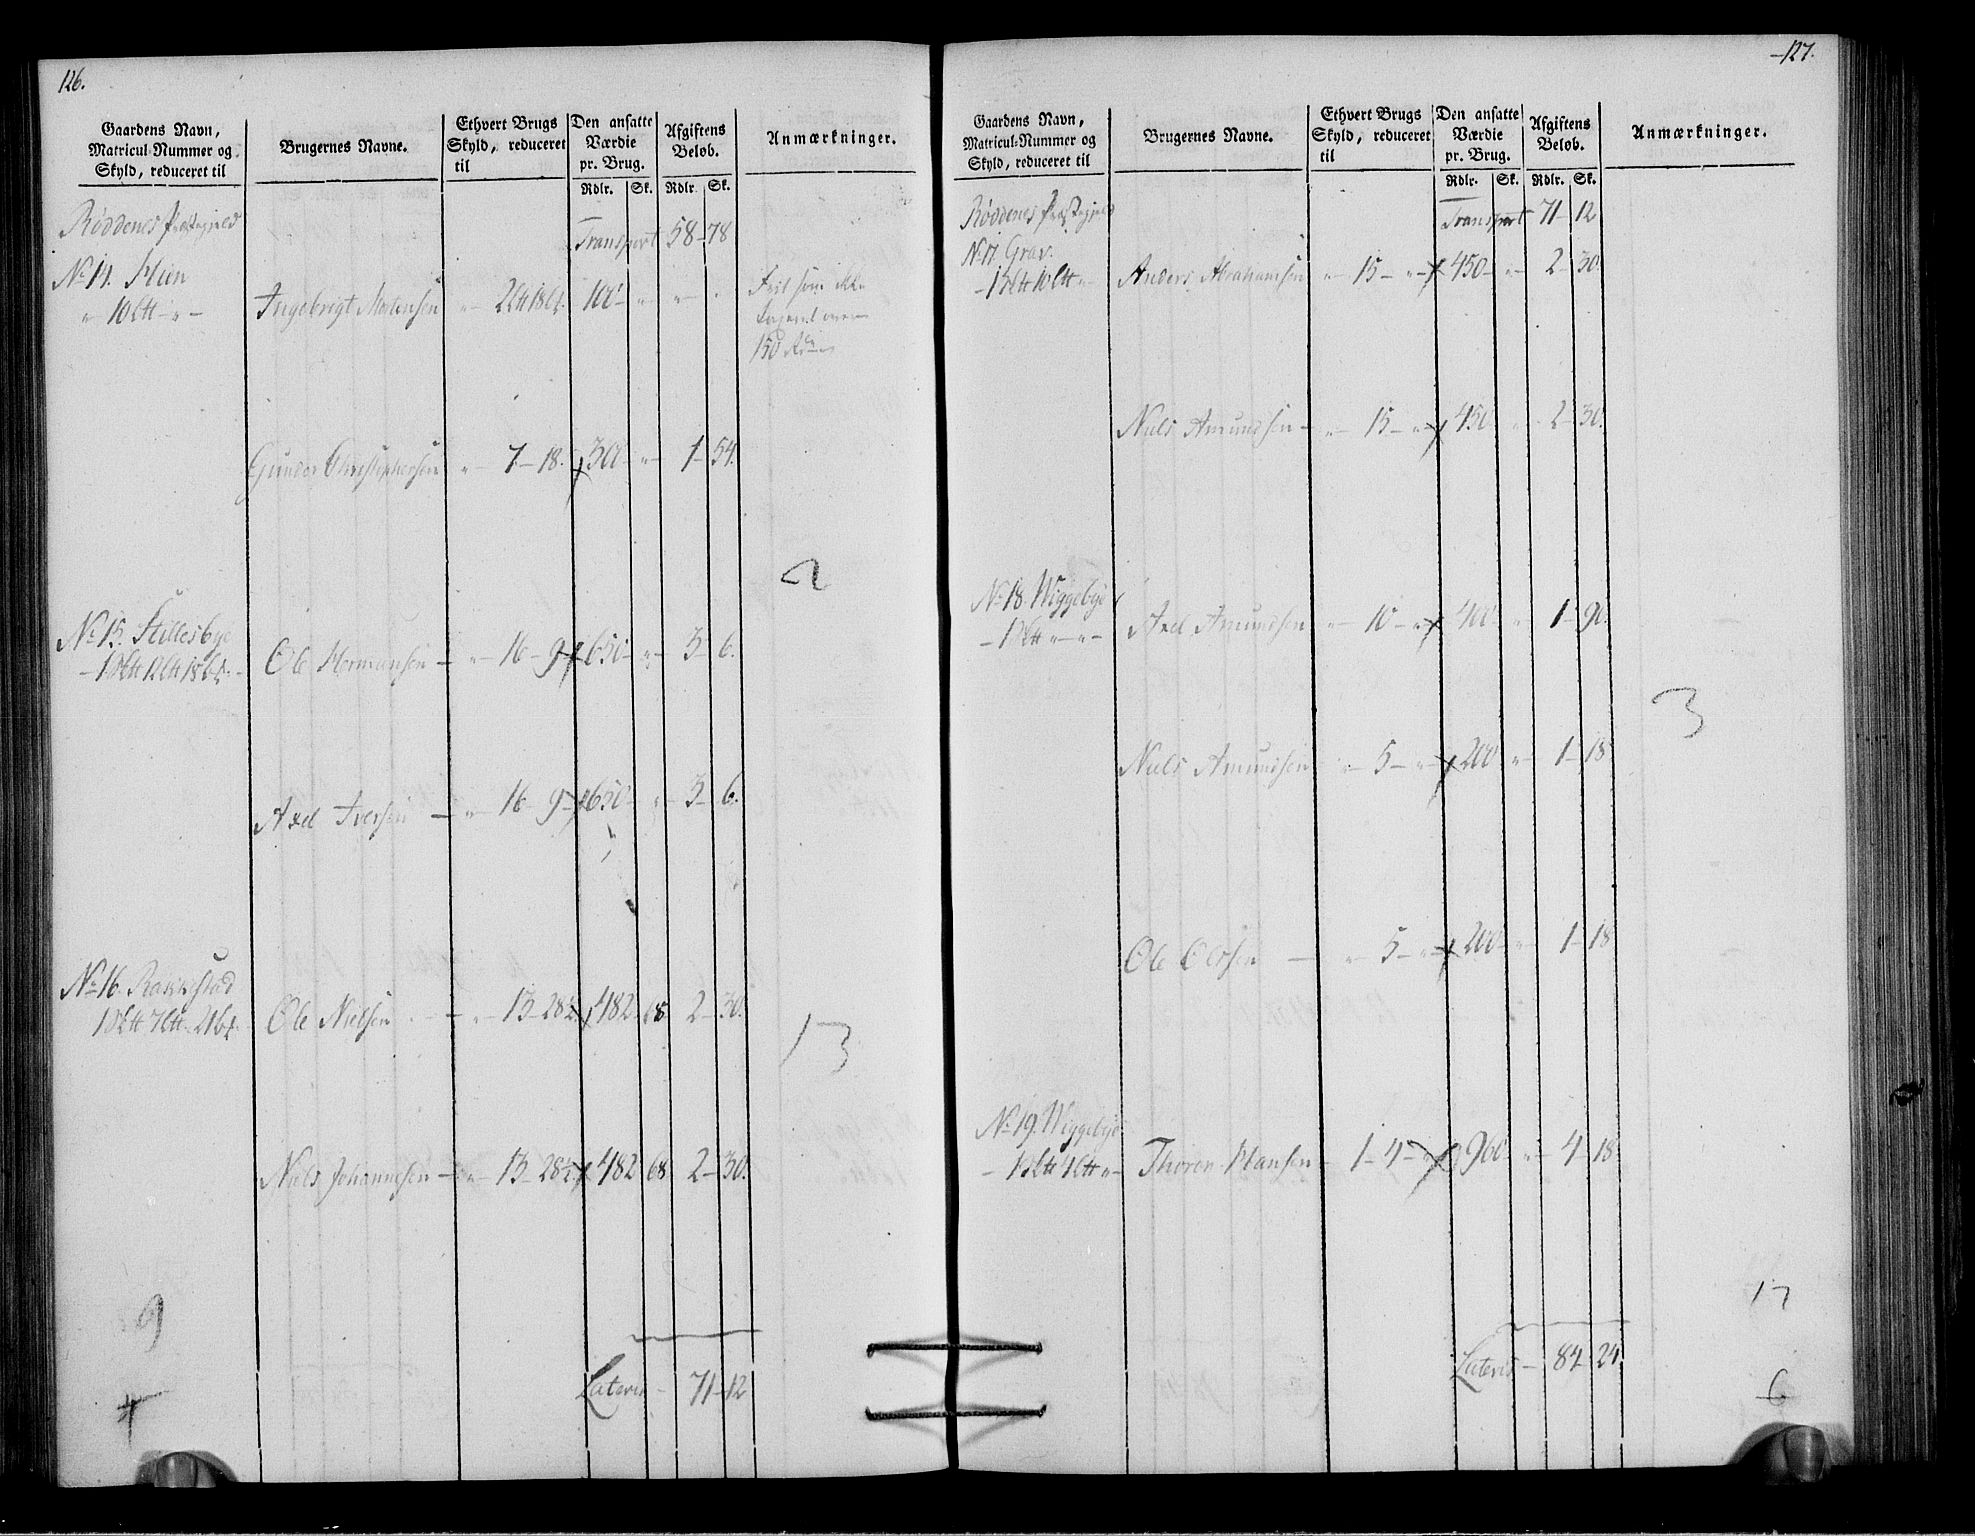 126.
Gaardens Navn, Matricul-Nummer og Skyld, reduceret til
Brugernes Navne.
Ethvert Brugs Skyld, reduceret til
Den ansatte Værdie pr. Brug.
Rdlr. Sk.
Afgiftens Beløb.
Rdlr. Sk.
Anmærkninger.
Røddenes Præstegield
Transport 58 - 78
No 14. Hien
" 10 Ltt - " -
Ingebrigt Mortensen " - 2 Ltt 18 bl. 100 - " - " - "
Frit som ikke
150 Rd
Gunder Christophersen " - 7 - 18. 300 - " - 1 - 54.
No 15. Hillesbye
- 1 Sktt 12 Ltt 18 bl. -
Ole Hermansen - " - 16 - 9 - 650 - " - 3 - 6.
Axel Iversen - " - 16 - 9 - 650 - " - 3 - 6.
2
No 16. Rakkestad
1 Sktt 7 Ltt 21 bl.
Ole Nielsen - " - 13 - 28½ 482 68 2 - 30.
Niels Johannesen - " - 13 - 28½ 482 68 2 - 30.
13
9
Lateris - 71 - 12
127.
Gaardens Navn, Matricul-Nummer og Skyld, reduceret til
Brugernes Navne.
Ethvert Brugs Skyld, reduceret til
Den ansatte Værdie pr. Brug.
Rdlr. Sk.
Afgiftens Beløb.
Rdlr. Sk.
Anmærkninger.
Røddenes Præstegield
Transport 71 - 12
No 17. Grav.
- 1 Sktt 10 Ltt " -
Anders Abrahamsen " - 15 - " - 450 - " - 2 - 30.
Niels Amundsen - " - 15 - " - 450 " - 2 - 30.
No 18. Wiggebye
- 1 Sktt " - " -
Axel Amundsen " - 10 - " - 400 " - 1 - 90.
Niels Amundsen " - 5 - " - 200 " - 1 - 18
Ole Olersen - " - 5 - " - 200 - " - 1 - 18
3
No 19. Wiggebye
- 1 Sktt 4 Ltt " -
Thoron Hansen - 1 - 4 - " 960 " - 4 - 18
17
Lateris - 84 - 24
6